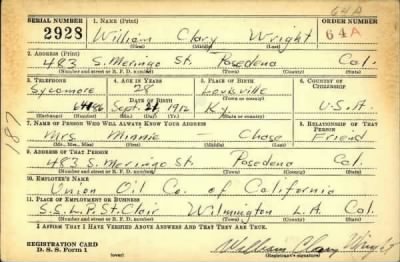 64A
SERIAL NUMBER 1. NAME (Print) ORDER NUMBER
2928 William Clary Wright 64A
(First) (Middle) (Last)
2. ADDRESS (Print)
483 S. Merringo St. Pasedena Cal.
(Number and street or R. F. D. number) (Town) (County) (State)
3. TELEPHONE 4. AGE IN YEARS 5. PLACE OF BIRTH 6. COUNTRY OF CITIZENSHIP
Sycomore 28 Louisville
DATE OF BIRTH (Town or county)
Sept. 21 1912 Ky. U.S.A.
(Exchange) (Number) (Mo.) (Day) (Yr.) (State or country)
7. NAME OF PERSON WHO WILL ALWAYS KNOW YOUR ADDRESS 8. RELATIONSHIP OF THAT PERSON
Mrs Minnie — Chase Friend
(Mr., Mrs., Miss) (First) (Middle) (Last)
187
9. ADDRESS OF THAT PERSON
483 S. Merringo St. Pasedena Cal.
(Number and street or R. F. D. number) (Town) (County) (State)
10. EMPLOYER'S NAME
Union Oil Co. of California
11. PLACE OF EMPLOYMENT OR BUSINESS
S.S. L.P. St. Clair Wilmington L.A. Cal.
(Number and street or R. F. D. number) (Town) (County) (State)
I AFFIRM THAT I HAVE VERIFIED ABOVE ANSWERS AND THAT THEY ARE TRUE.
REGISTRATION CARD William Clary Wright
D. S. S. Form 1 (over) (Registrant's signature)